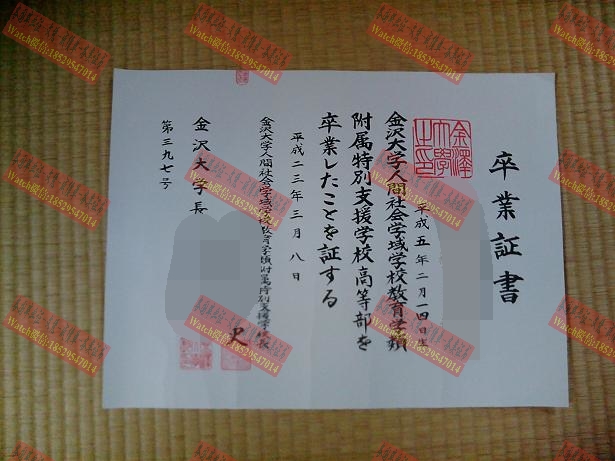 卒業証書
金澤大學之印
平成五年二月一四日生
金沢大学人間社会学域学校教育学類
附属特別支援学校高等部を
卒業したことを証する
平成二三年三月八日
金沢大学人間社会学域学校教育学類附属特別支援学校長
金沢大学長
第三九七号
Watch微信:18529547014